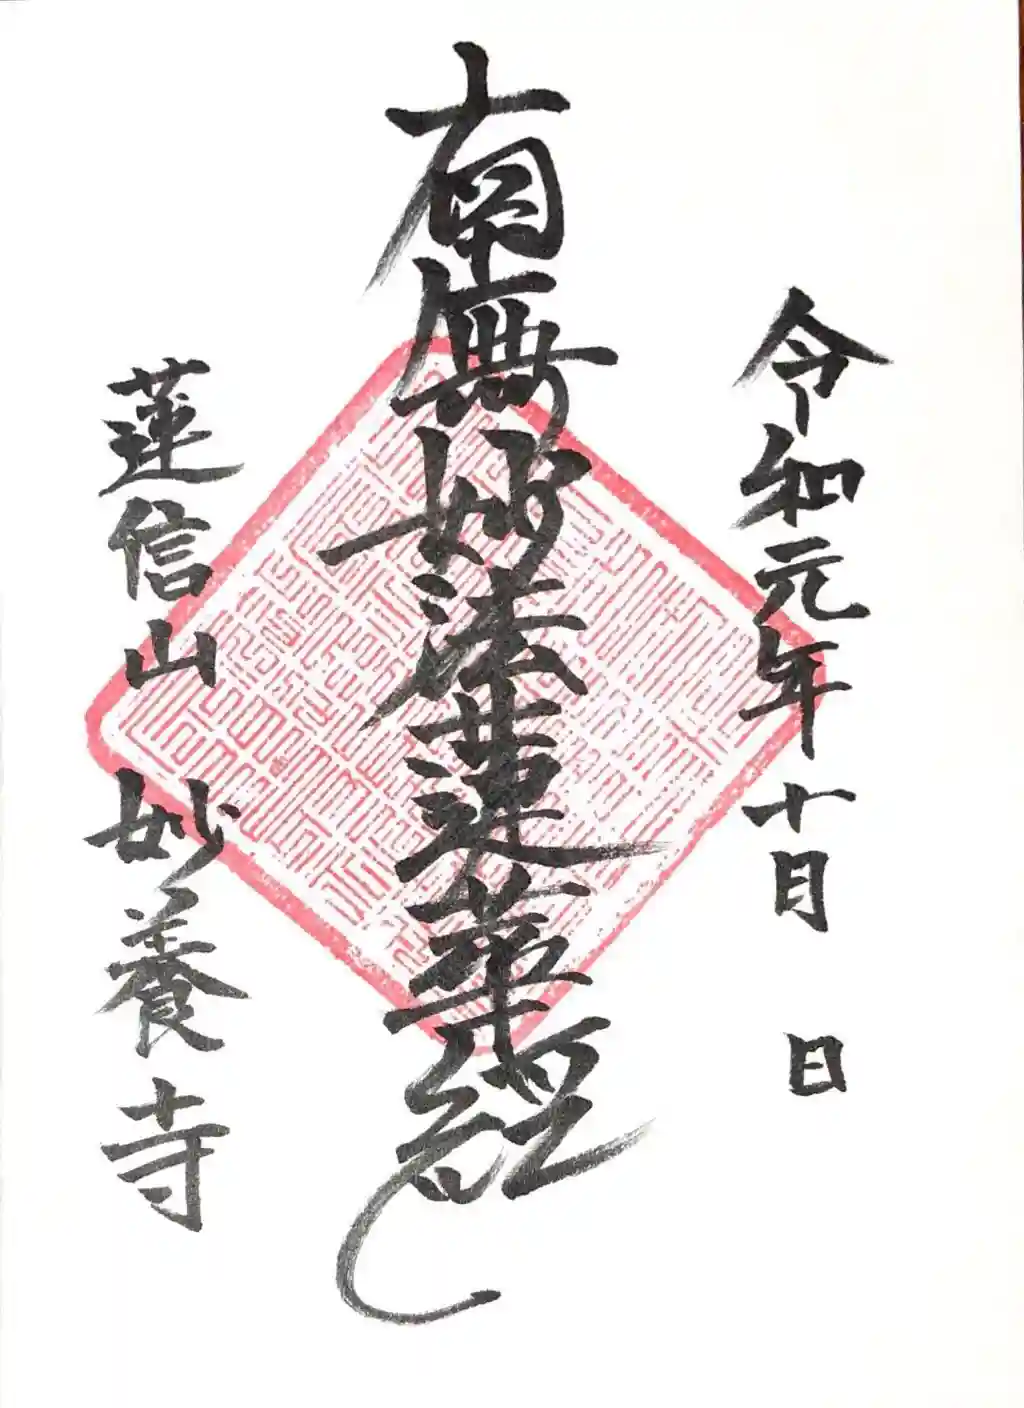 令和元年十月 日
南無妙法蓮華經
蓮信山 妙養寺